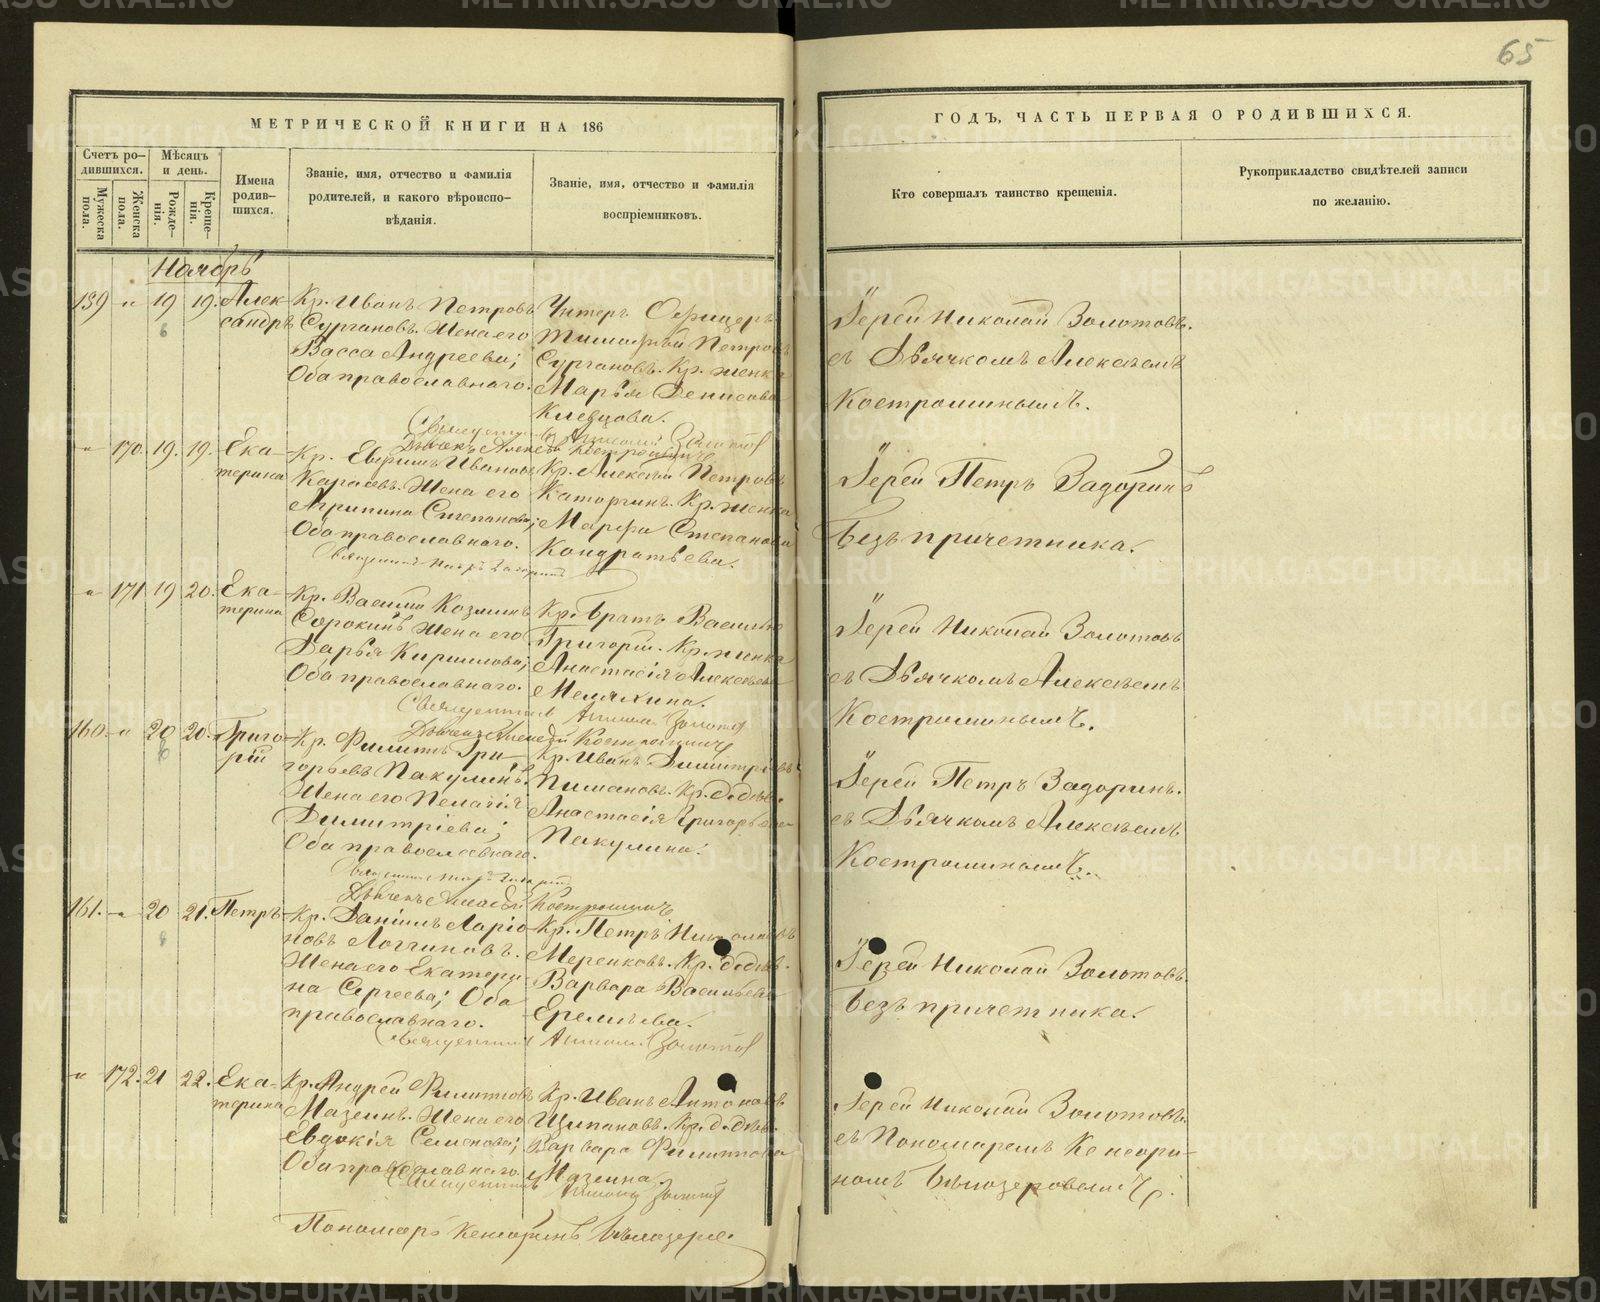 65
МЕТРИЧЕСКОЙ КНИГИ НА 186
ГОДЪ, ЧАСТЬ ПЕРВАЯ О РОДИВШИХСЯ.
Счетъ ро-
дившихся.
Мужеска
пола.
Женска
пола.
Мѣсяцъ
и день.
Рожде-
нія.
Креще-
нія.
Имена
родив-
шихся.
Званіе, имя, отчество и фамилія
родителей, и какого вѣроиспо-
вѣданія.
Званіе, имя, отчество и фамилія
воспріемниковъ.
Кто совершалъ таинство крещенія.
Рукоприкладство свидѣтелей записи
по желанію.
Ноябрь
159 " 19 19. Алек-
сандръ
Кр. Иванъ Петровъ
Сургановъ. Жена его
Васса Андреева;
Оба православнаго.
Унтеръ Офицеръ
Тимофей Петровъ
Сургановъ. Кр. женка
Марья Денисова
Клевцова.
Іерей Николай Золотовъ.
съ Дьячкомъ Алексѣемъ
Костроминымъ.
" 170. 19. 19. Ека-
терина
Кр. Ефимъ Ивановъ
Караевъ. Жена его
Агрипина Степанова;
Оба православнаго.
Кр. Алексѣй Петровъ
Каторгинъ. Кр. женка
Марфа Степанова
Кондратьева.
Іерей Петръ Задоринъ
безъ причетника.
" 171 19 20. Ека-
терина
Кр. Василій Козминъ
Сорокинъ Жена его
Дарья Кирилова;
Оба православнаго.
Кр. братъ Василія
Григорій. Кр. женка
Анастасія Алексѣева
Мелякина.
Іерей Николай Золотовъ
съ Дьячкомъ Алексѣемъ
Костроминымъ.
160 " 20 20. Григо-
рій
Кр. Филипъ Гри-
горьевъ Пакулинъ.
Жена его Пелагія
Димитріева;
Оба православнаго.
Кр. Иванъ Димитріевъ
Пимановъ. Кр. д. дѣв.
Анастасія Григорьева
Пакулина.
Іерей Петръ Задоринъ.
съ Дьячкомъ Алексѣемъ
Костроминымъ.
161. " 20 21. Петръ
Кр. Даніилъ Ларіо-
новъ Логгиновъ.
Жена его Екатери-
на Сергеева; Оба
православнаго.
Кр. Петръ Николаевъ
Меренковъ. Кр. д. дѣв.
Варвара Васильева
Еремѣева.
Іерей Николай Золотовъ
безъ причетника.
" 172. 21 22. Ека-
терина
Кр. Андрей Филиповъ
Мазеинъ. Жена его
Евдокія Семенова;
Оба православнаго.
Кр. Иванъ Антоновъ
Щипановъ. Кр. д. дѣв.
Варвара Филиппова
Мазеина.
Іерей Николай Золотовъ.
съ Пономаремъ Кенсори-
номъ Бѣлозеровымъ.
Пономарь Кенсоринъ Бѣлозеро
METRIKI.GASO-URAL.RU